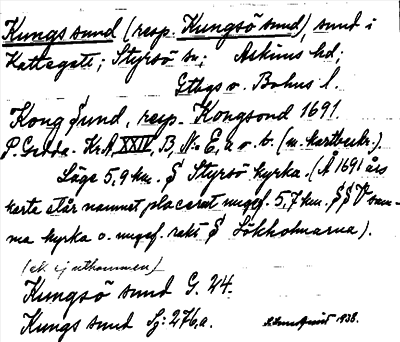 Kungssund (resp. Kungsö sund), sund i
Kattegatt; Styrsö sn; Askims hd;
Gtbgs o. Bohus l.
Kong Sund, resp. Kongsond 1691
P. Gedda. Kr.A. XXIV, B, No E, a o. b. (m. kartbeskr.).
Läge 5,9 km. S Styrsö kyrka. (Å 1691 års
karta står namnet placerat ungef. 5,7 km. SSV sam-
ma kyrka o. ungef. rakt S Lökholmarna).
(ek. ej utkommen)
Kungsö sund G. 24.
Kungs sund Sj: 276,a.
1938.